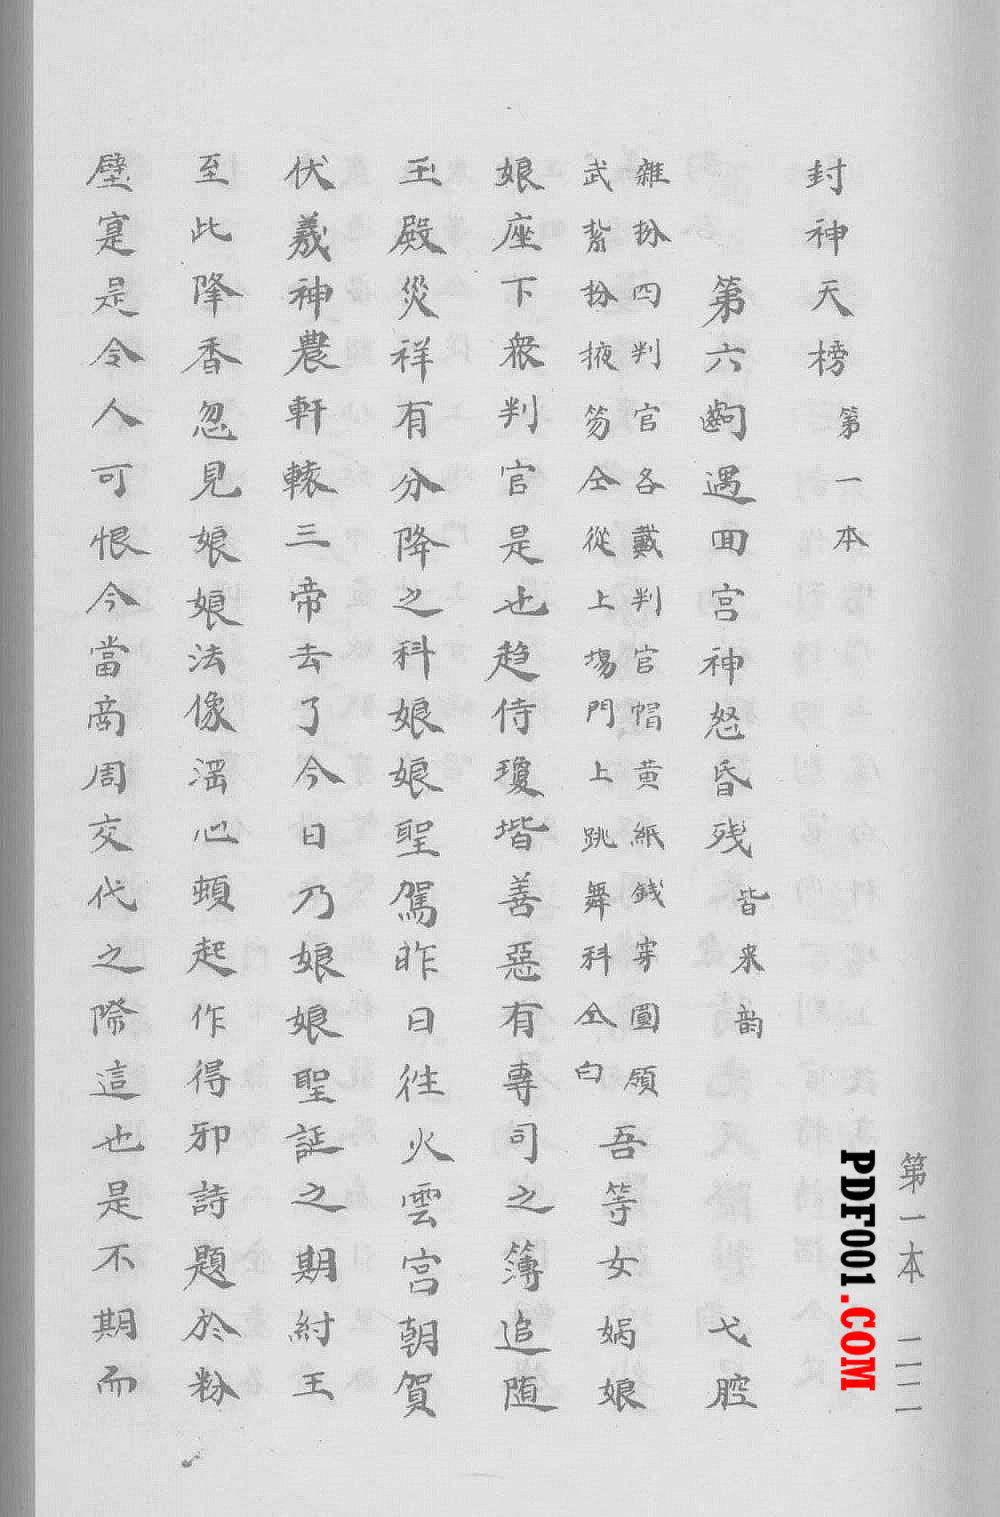 封神天榜 第一本
第六齣 遇回宮神怒昏殘 皆来韵 弋腔
雜扮四判官各戴判官帽黄紙錢穿圓領
武紥扮掖笏仝從上塲門上跳舞科仝白
吾等女媧娘
娘座下衆判官是也趋侍瓊堦善惡有專司之簿追随
玉殿災祥有分降之科娘娘聖駕昨日徃火雲宮朝賀
伏羲神農軒轅三帝去了今日乃娘娘聖誕之期紂王
至此降香忽見娘娘法像滛心頓起作得邪詩題於粉
壁寔是令人可恨今當啇周交代之際這也是不期而
第一本 一二二
PDF001.COM